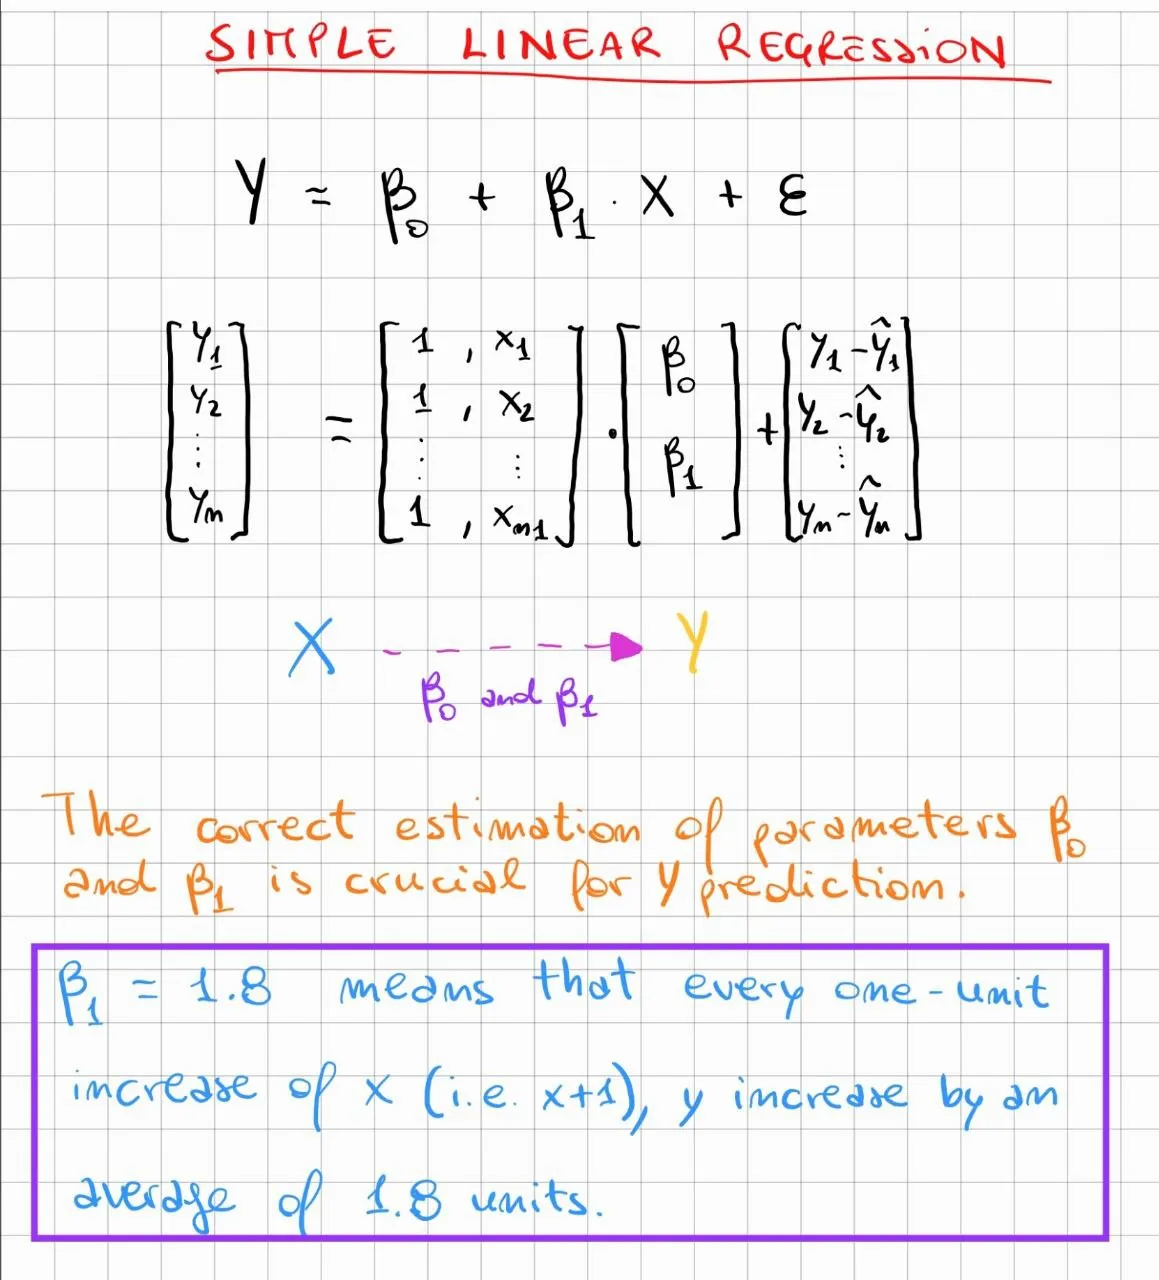 SIMPLE LINEAR REGRESSION
Y = β₀ + β₁ · X + ε
[y₁ y₂ ⋮ yₙ] = [1 , x₁ 1 , x₂ ⋮ ⋮ 1 , xₙ₁] · [β₀ β₁] + [y₁ - ŷ₁ y₂ - ŷ₂ ⋮ yₙ - ŷₙ]
X Y
β₀ and β₁
The correct estimation of parameters β₀
and β₁ is crucial for Y prediction.
β₁ = 1.8 means that every one-unit
increase of x (i.e. x+1), y increase by an
average of 1.8 units.